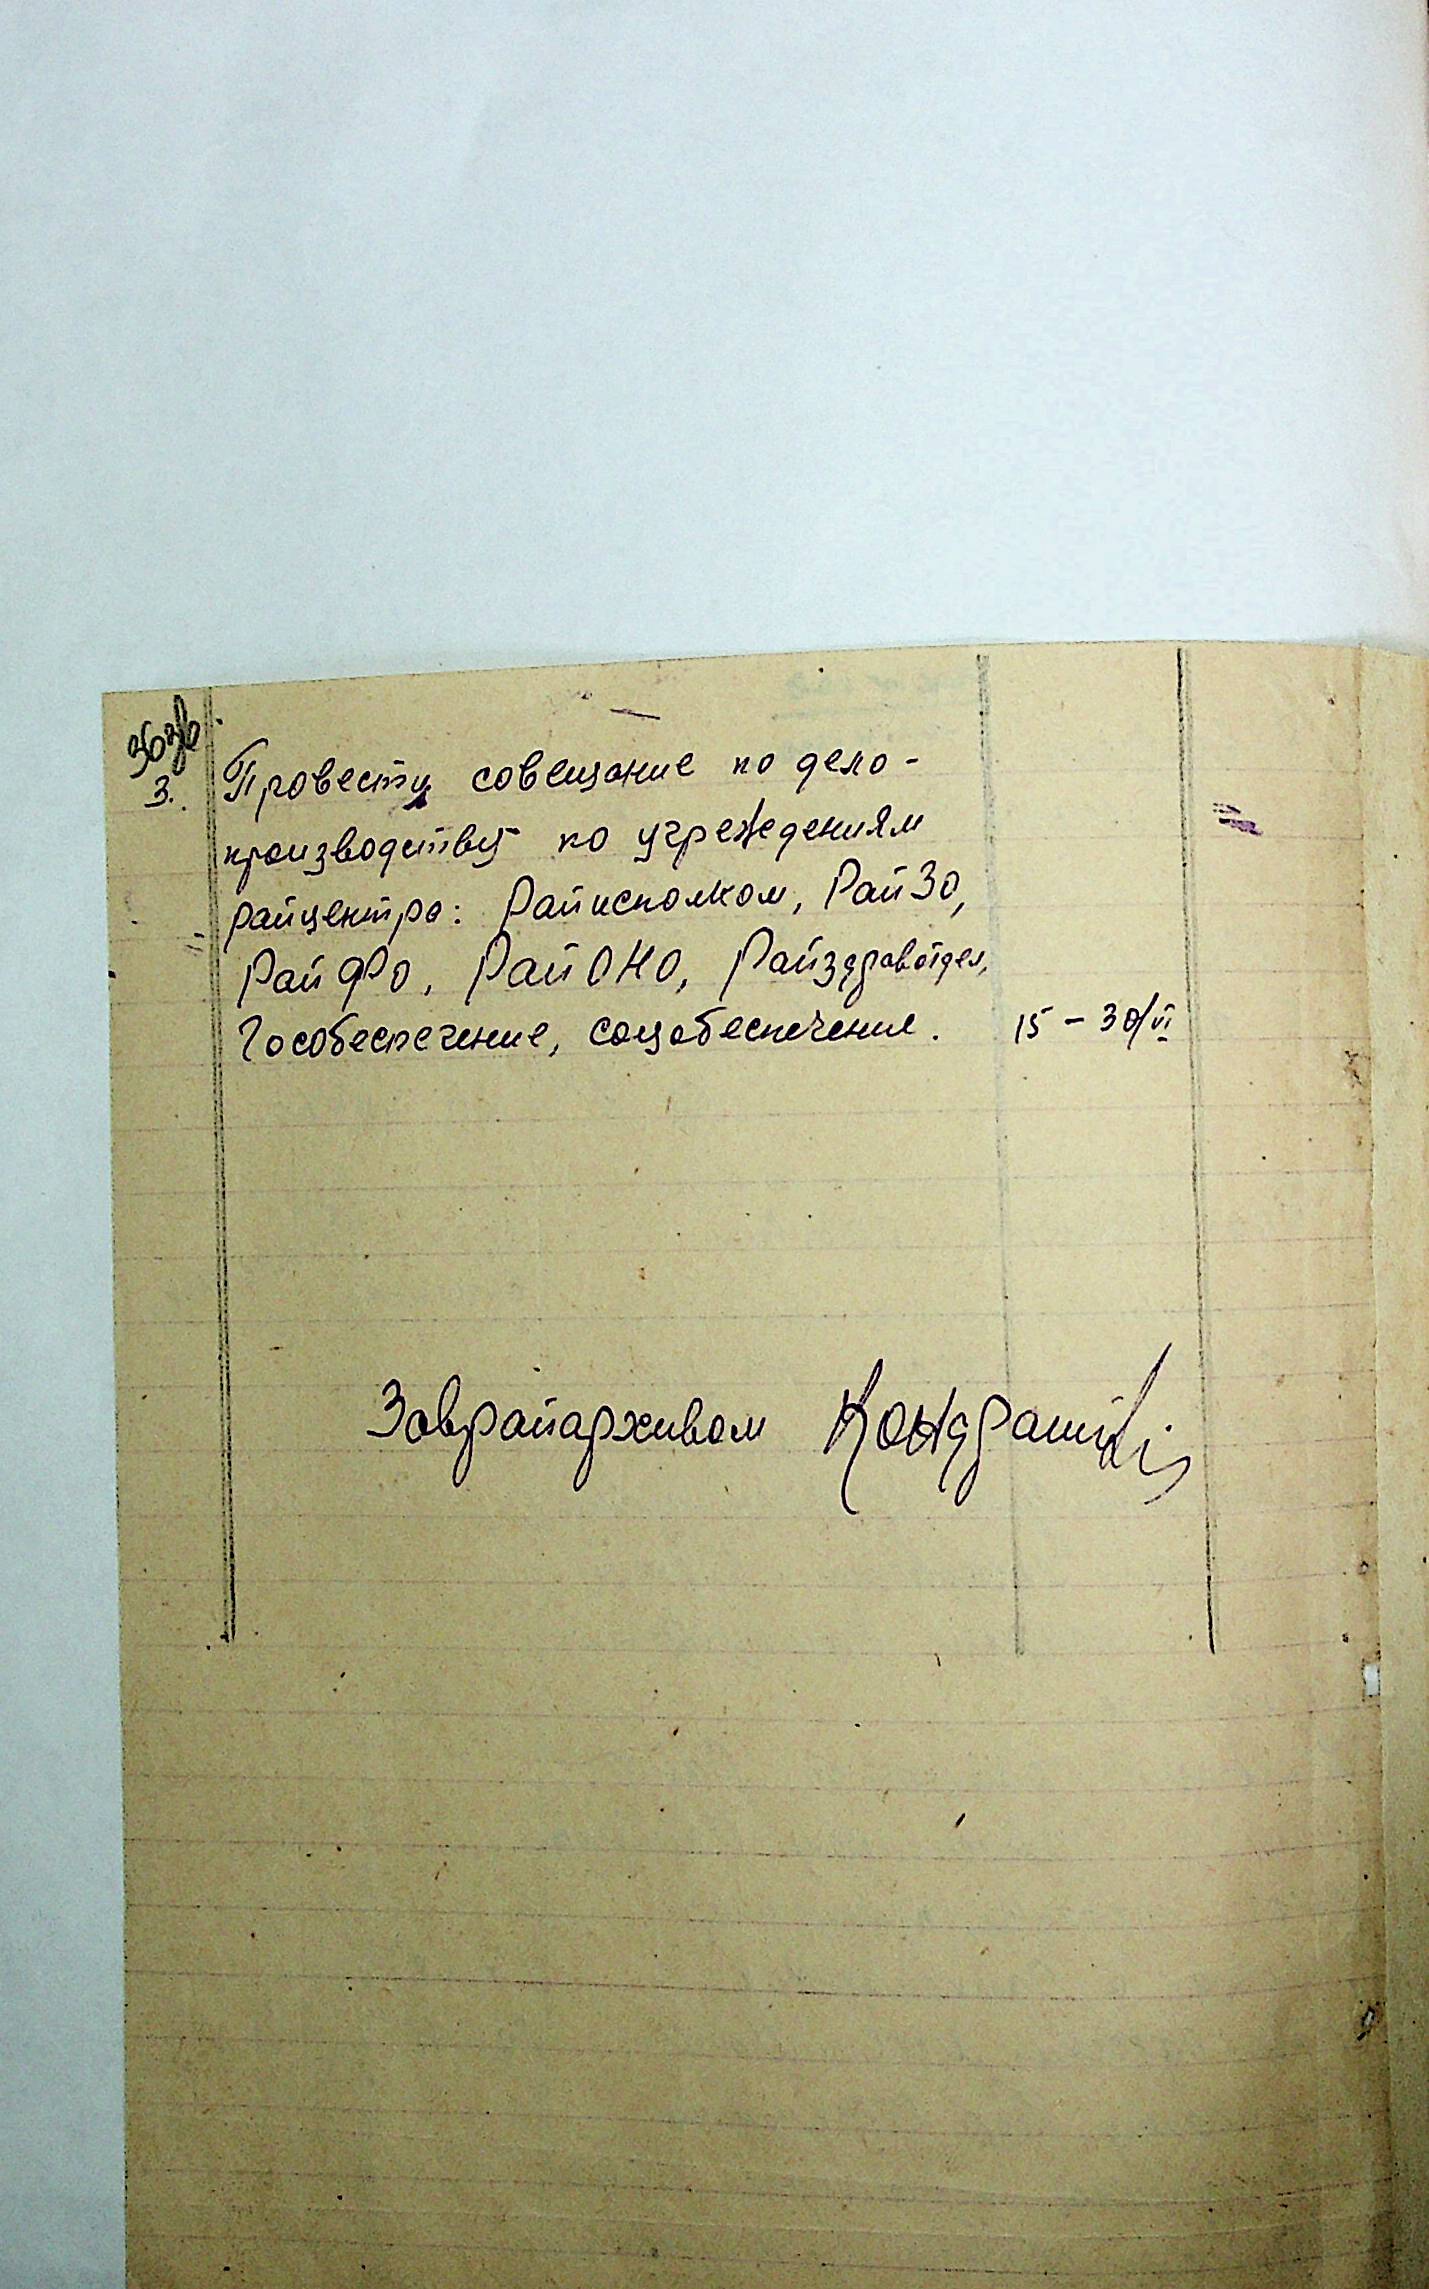 3. Провести совещание по дело-
производству по учреждениям
райцентра: Райисполком, РайЗо,
РайФо, РайОНО, Райздравотдел,
Гособеспечение, соцобеспечения. 15 – 30/VI
Заврайархивом